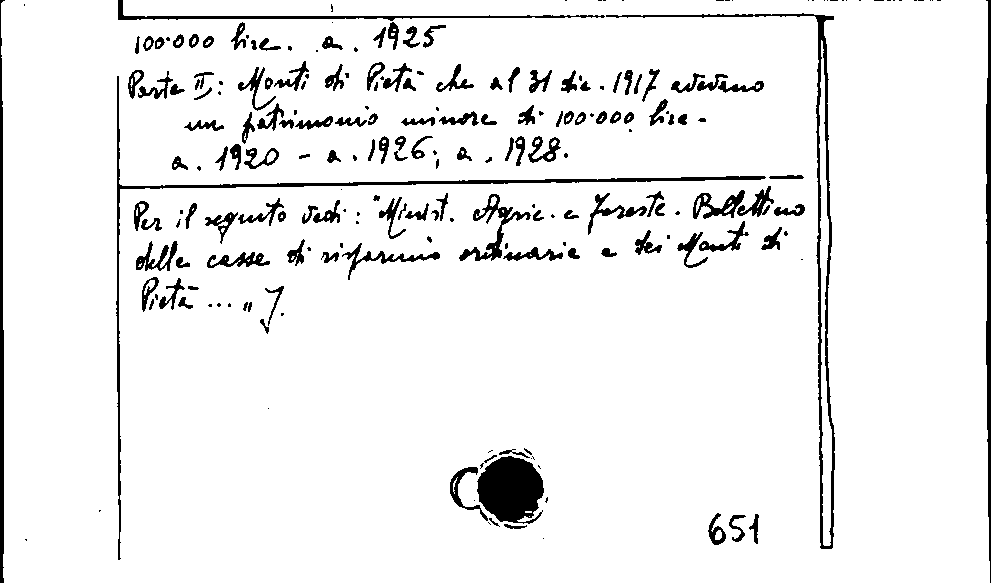 100.000 lire. a. 1925
Parte II: Monti di Pietà che al 31 dic. 1917 avevano
un patrimonio minore di 100.000 lire -
a. 1920 - a. 1926; a. 1928.
Per il seguito vedi: "Minist. Agric. e foreste. Bollettino
delle casse di risparmio ordinarie e dei Monti di
Pietà ... "
651